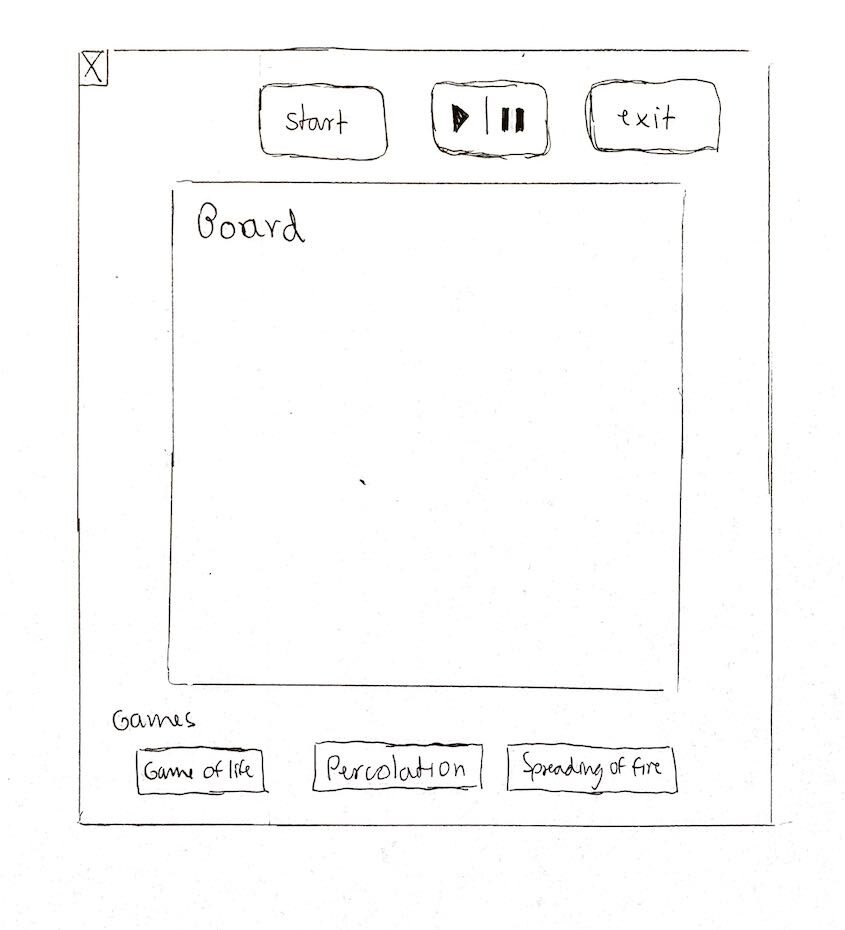 X
start
exit
Board
Games
Game of life
Percolation
Spreading of fire